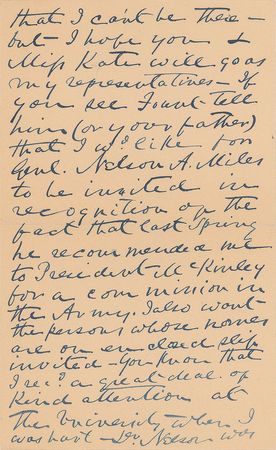 that I can't be there -
but I hope you &
Miss Kate will go as
my representatives - If
you see Fount - tell
him (or your father)
that I wd. like for
Genl. Nelson A. Miles
to be invited in
recognition of the
fact that last Spring
he recommended me
to President McKinley
for a commission in
the Army. I also want
the persons whose names
are on enclosed slip
invited - You know that
I recd. a great deal of
kind attention at
the University - when I
was hurt - Dr. Nelson was